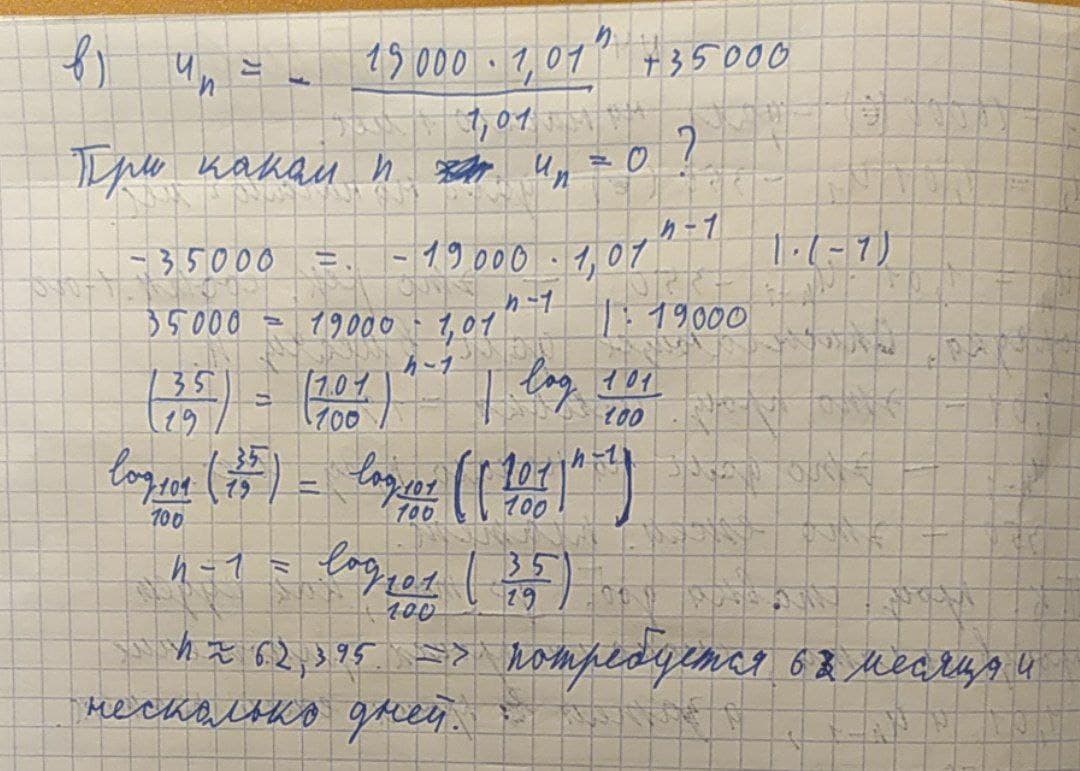 в) uₙ = - (19000 · 1,01ⁿ)/(1,01) + 35000
При каком n uₙ = 0 ?
-35000 = -19000 · 1,01ⁿ⁻¹ | · (-1)
35000 = 19000 · 1,01ⁿ⁻¹ | : 19000
(35/19) = (101/100)ⁿ⁻¹ | log 101/100
log_(101/100) (35/19) = log_(101/100) ((101/100)ⁿ⁻¹)
n-1 = log_(101/100) (35/19)
n ≈ 62,395. => потребуется 62 месяца и
несколько дней.